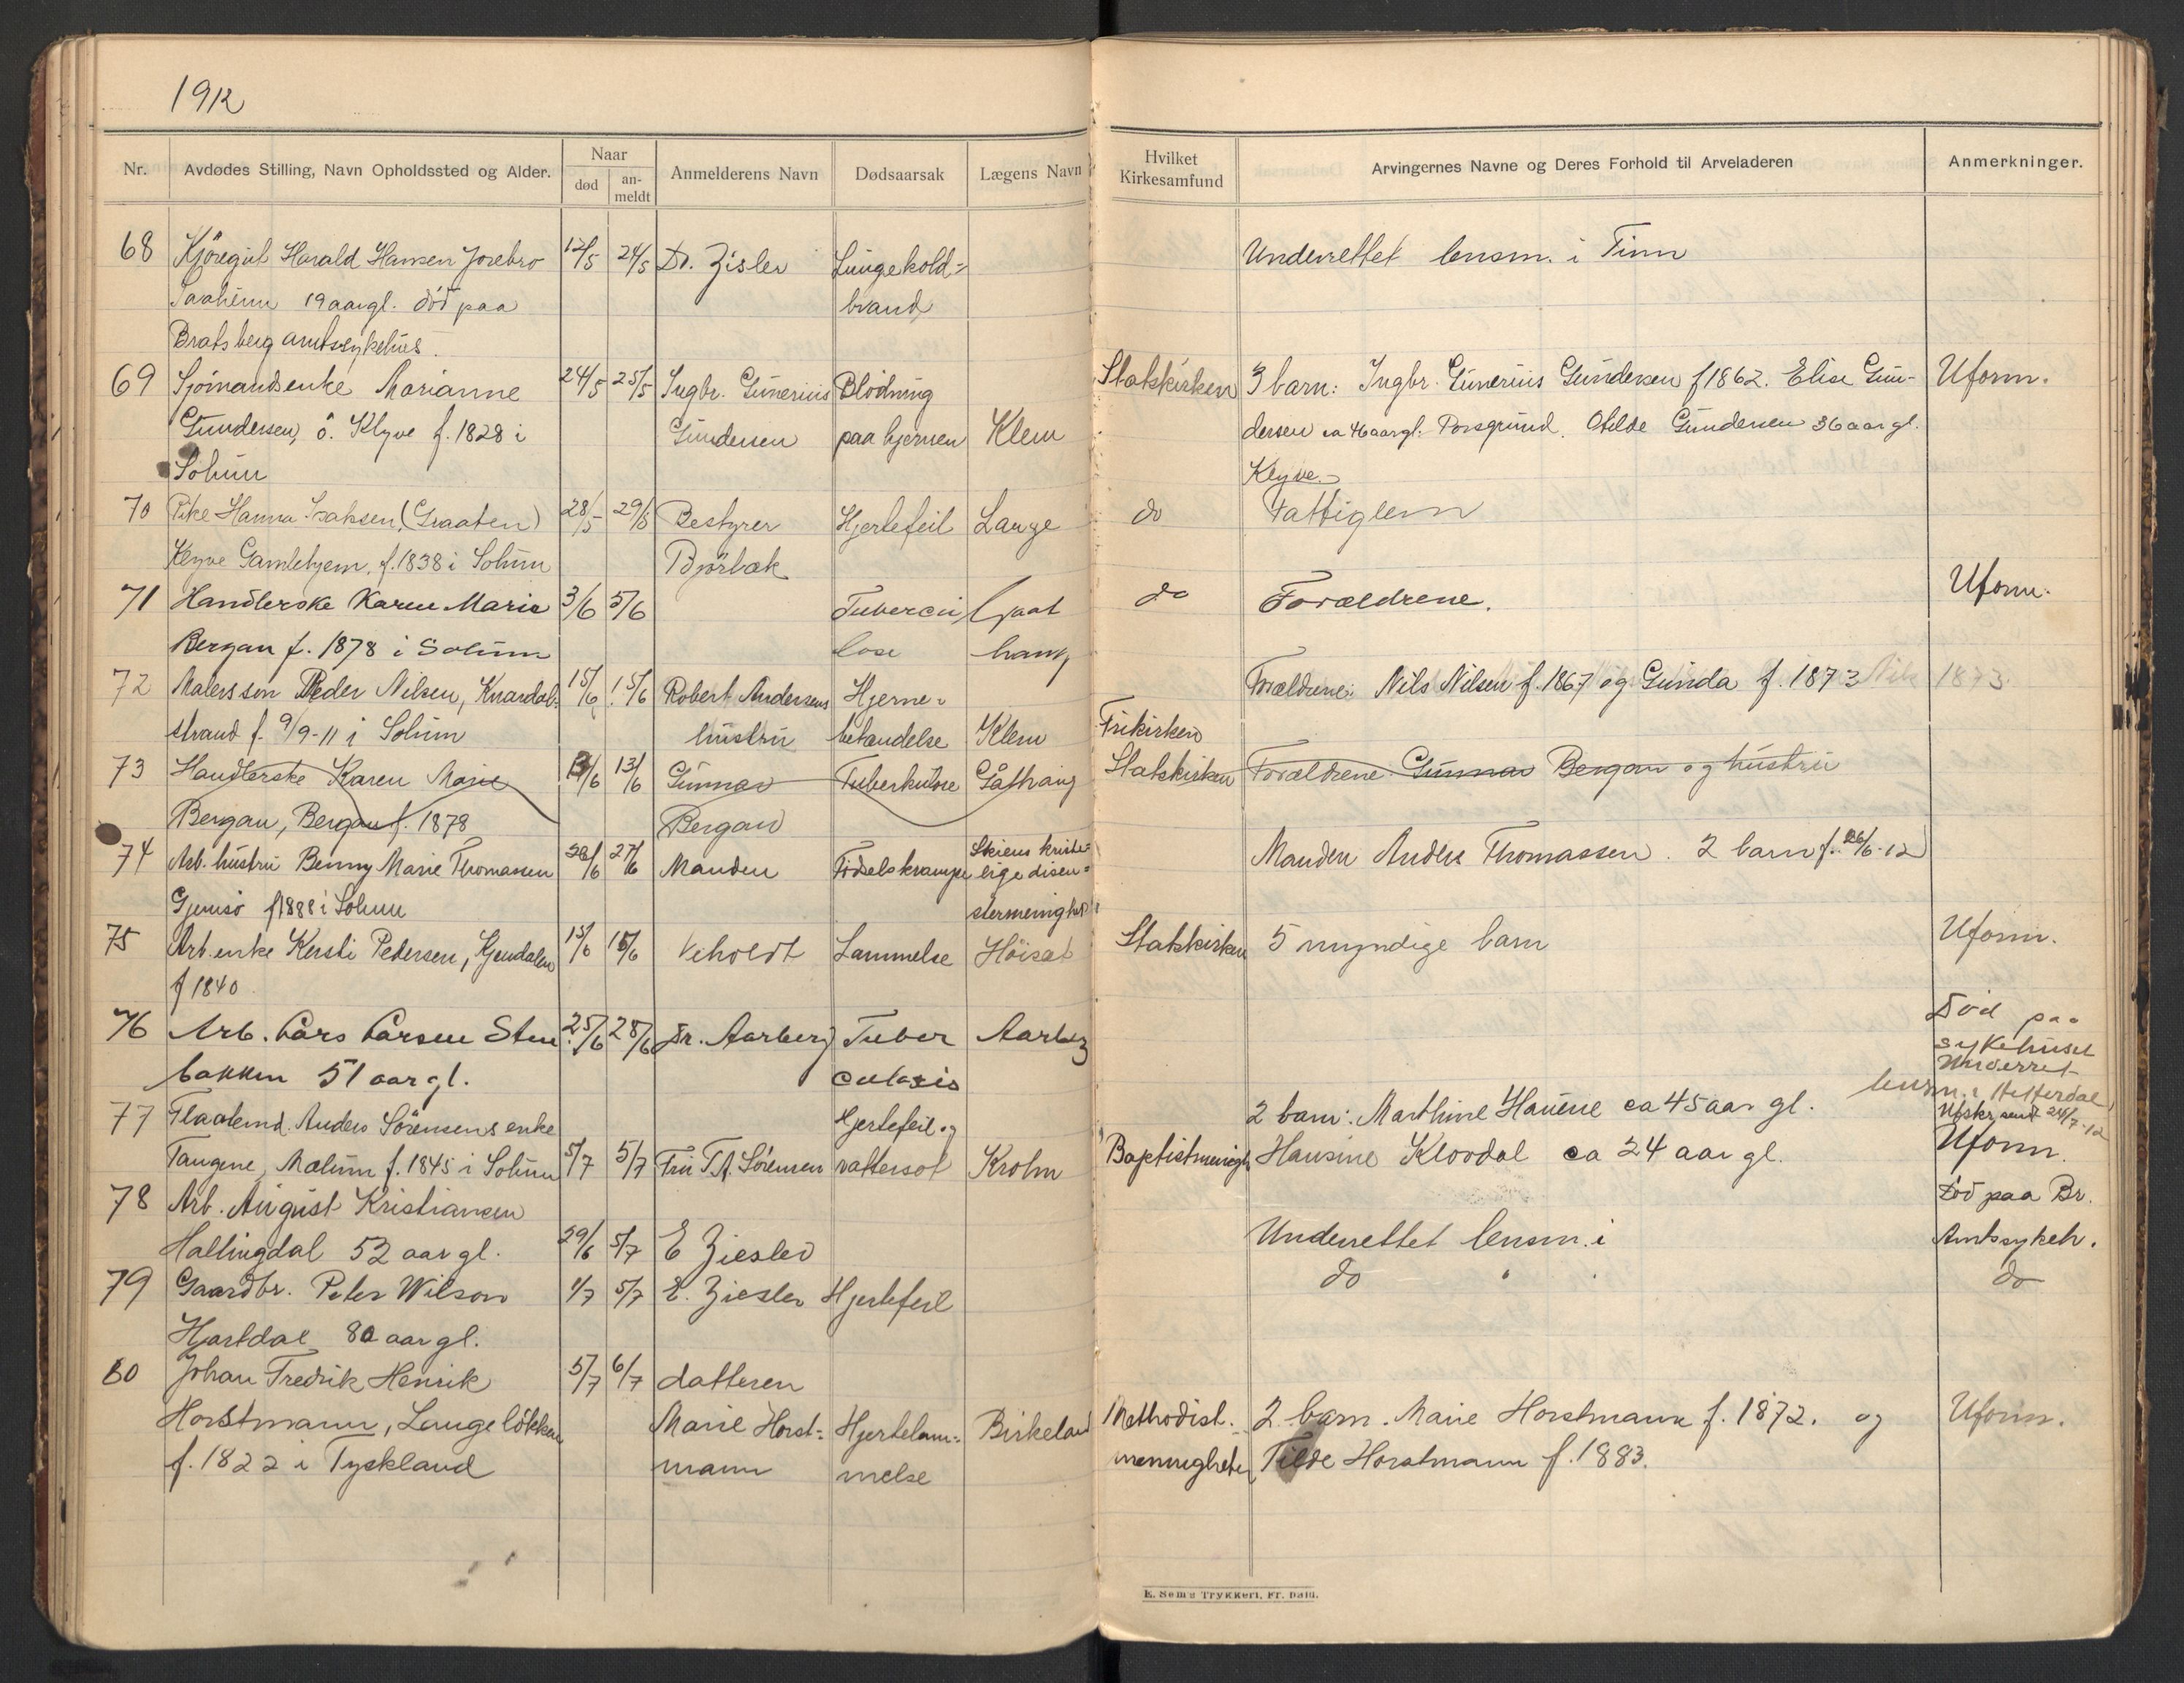 1912
Nr.
Avdødes Stilling, Navn Opholdssted og Alder.
Naar
død
an-
meldt
Anmelderens Navn
Dødsaarsak
Lægens Navn
Hvilket
Kirkesamfund
Arvingernes Navne og Deres Forhold til Arveladeren
Anmerkninger.
68 Kjöregut Harald Hansen 12/5 24/5 Dr. Zisler Lungekold= Underrettet lensm. i Tinn
Saaheim 19 aar gl. död paa brand
Bratsberg amtssykehus.
69 Sjömandsenke Marianne 24/5 25/5 Ingbr. Gunerius Blödning Statskirken 3 barn: Ingbr. Gunerius Gundersen f 1862. Elise Gun- Uform.
Gundersen, ö. Klyve f. 1828 i Gundersen paa hjernen Klem dersen ca 46 aar gl. Porsgrund. Otilde Gundersen 36 aar gl.
Solum Klyve.
70 Pike Hanna Isaksen, (Graaten) 28/5 29/5 Bestyrer Hjertefeil Lange do Fattiglem
Klyve Gamlehjem. f. 1838 i Solum Björbæk
71 Handlerske Karen Marie 3/6 5/6 Tubercu Gaat do Forældrene. Uform.
Bergan f. 1878 i Solum lose haug
72 Malers sön Peder Nilsen, Knardal- 15/6 15/6 Robert Andersens Hjerne- Forældrene: Nils Nilsen f. 1867 og Gunda f. 1873 1873.
strand f. 9/9-11 i Solum hustru betændelse Klem Frikirken
73 Handlerske Karen Marie 3/6 13/6 Gunnar Tuberkulose Gåthaug Statskirken Forældrene Gunnar Bergan og hustru
Bergan, Bergan f. 1878 Bergan
74 Arb. hustru Benny Marie Thomassen 26/6 27/6 Manden Födselskrampe Skiens kriste= lige disen= Manden Anders Thomassen. 2 barn f. 26/6-12
Gjemsö f 1888 i Solum stermenighet
75 Arb. enke Kersti Pedersen, Gjendalen 15/6 15/6 Veholdt Lammelse Höisæt Statskirken 5 myndige barn Uform.
f 1840.
76 Arb. Lars Larsen Sten 25/6 28/6 Dr. Aarberg Tuber Aarberg Död paa
bakken 51 aar gl. culosis sykehuset
Underret
lensm. i Hitterdal
77 Flaatemd. Anders Sörensens enke Hjertefeil og 2 barn: Marthine Hauene ca 45 aar gl. Utskr. sendt 24/7-12
Tangene, Mælum f. 1845 i Solum 5/7 5/7 Fru T. A. Sörensen vattersot Krohn Baptistmenigh. Hansine Klovdal ca 24 aar gl. Uform.
78 Arb. August Kristiansen Död paa Br.
Hallingdal 52 aar gl. 29/6 5/7 E Ziesler Underrettet lensm. i Amtssykeh.
79 Gaardbr. Peter Wilson 1/7 5/7 E. Ziesler Hjertefeil do do
Hjartdal 80 aar gl.
80 Johan Fredrik Henrik 5/7 6/7 datteren
Horstmann, Langelökken Marie Horst= Hjertelam= Birkeland Methodist. 2 barn. Marie Horstmann f. 1872. og Uform.
f. 1822 i Tyskland mann melse menigheten Tilde Horstmann f. 1883.
E. Sems Trykkeri, Fr.hald.